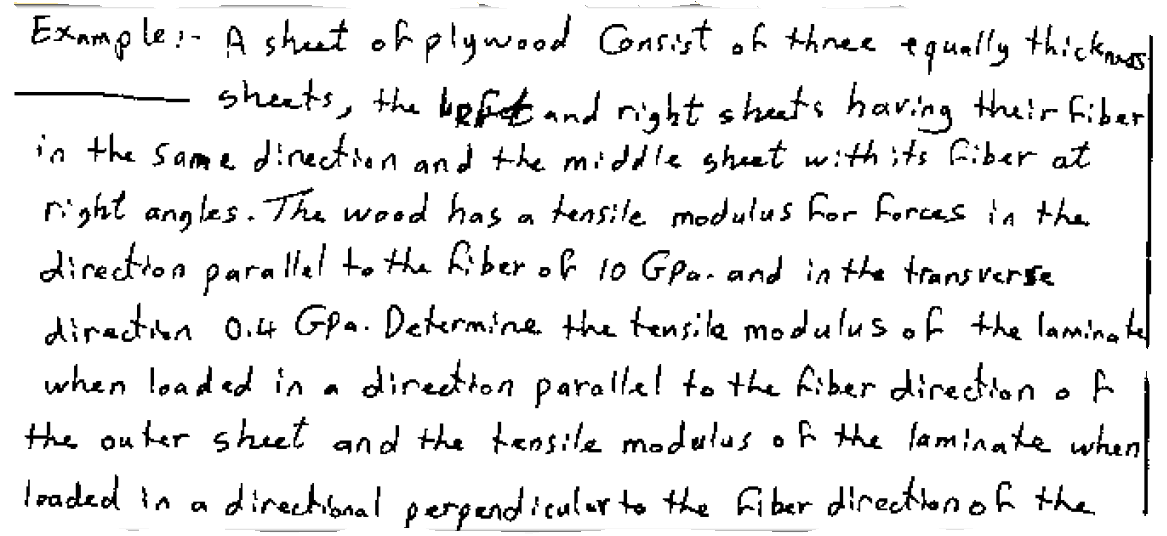 Example:- A sheet of plywood Consist of three equally thickness
sheets, the and right sheets having their fiber
in the same direction and the middle sheet with its fiber at
right angles. The wood has a tensile modulus for forces in the
direction parallel to the fiber of 10 GPa. and in the transverse
direction 0.4 GPa. Determine the tensile modulus of the laminate
when loaded in a direction parallel to the fiber direction of
the outer sheet and the tensile modulus of the laminate when
loaded in a directional perpendicular to the fiber direction of the